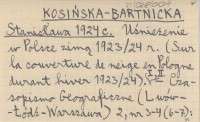 KOSIŃSKA-BARTNICKA
Stanisława 1924 c. Uśnieżenie
w Polsce zimą 1923/24 r. (Sur
la couverture de neige en Pologne
durant hiver 1923/24). I, II Cza-
sopismo Geograficzne (Lwów-
-Łódź-Warszawa) 2, nr 3-4 (6-7):